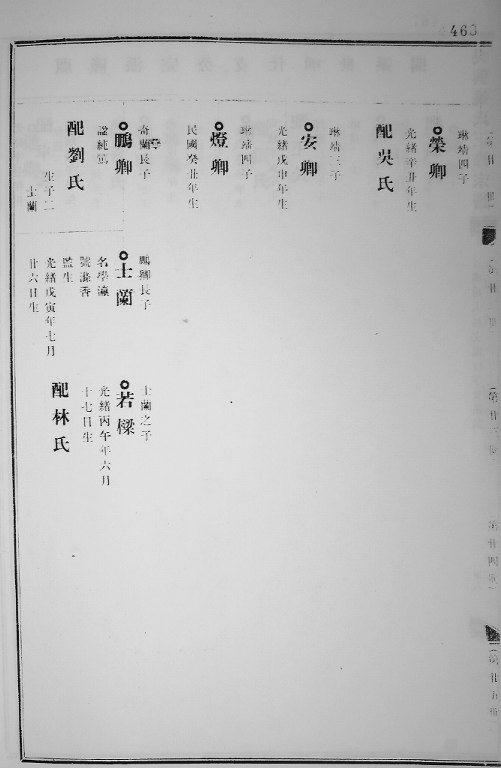 463
琳靖四子
榮卿
光緒辛丑年生
配吳氏
琳靖三子
安卿
光緒戊申年生
琳靖四子
燈卿
民國癸丑年生
奇蘭長子
鵬卿
諡純篤
配劉氏
生子二
士蘭
鵬卿長子
士蘭
名學瀛
號滌香
監生
光緒戊寅年七月
廿六日生
士蘭之子
若樑
光緒丙午年六月
十七日生
配林氏